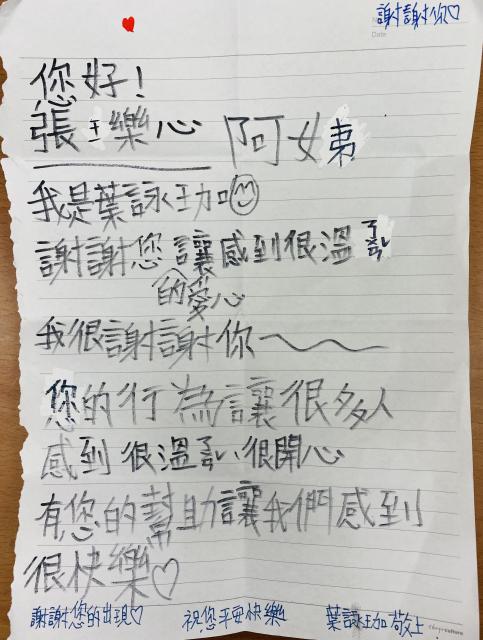 謝謝你♡
Date
您好!
張王樂心 阿姨
我是葉詠珈
謝謝您讓感到很溫
的愛心
我很謝謝你~~
您的行為讓很多人
感到很溫ㄋㄨㄢˇ很開心
有您的幫助讓我們感到
很快樂♡
謝謝您的出現♡ 祝您平安快樂 葉詠珈敬上